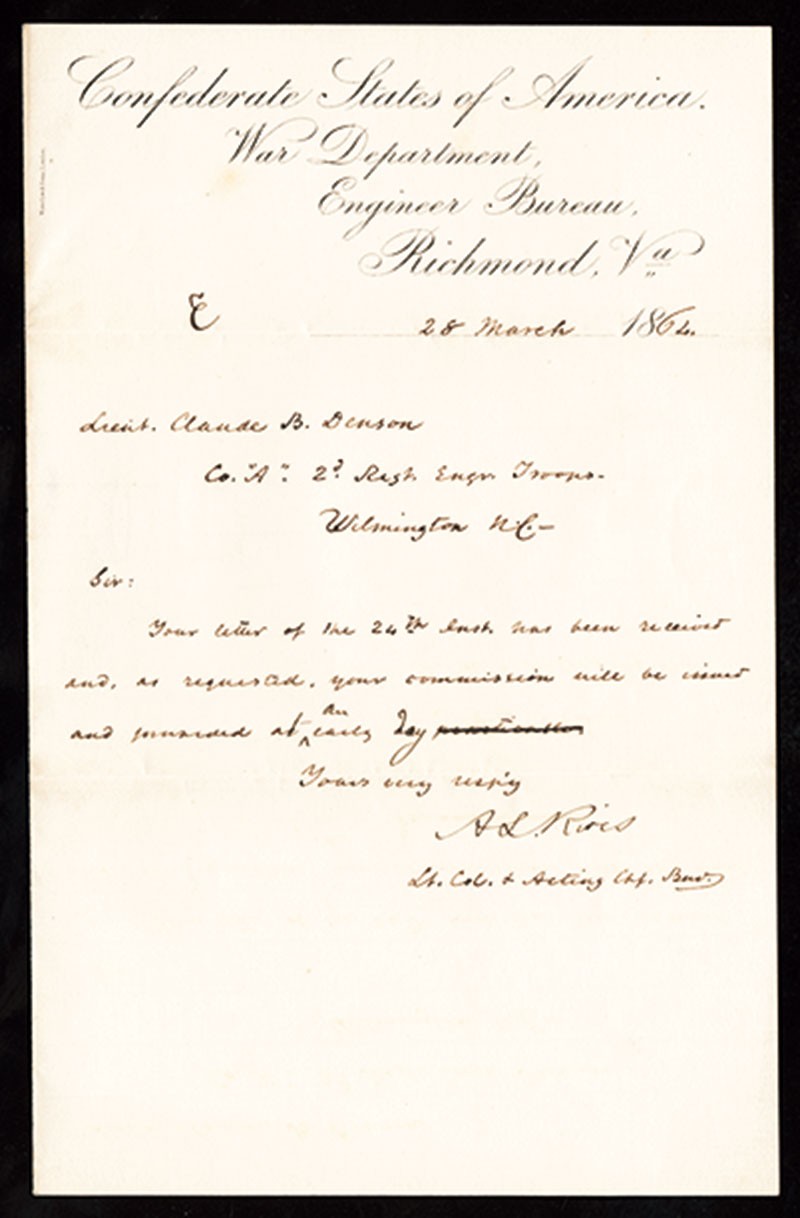 Confederate States of America.
War Department,
Engineer Bureau,
Richmond, Va
E
28 March 1864.
Lieut. Claude B. Denson
Co. "A". 2d Regt. Engr. Troops.
Wilmington N.C. —
Sir:
Your letter of the 24th Inst. has been received
and, as requested, your commission will be issued
and forwarded at an early day
Yours very resp'y
A L. Rives
Lt. Col. & Acting Chf. Bur.